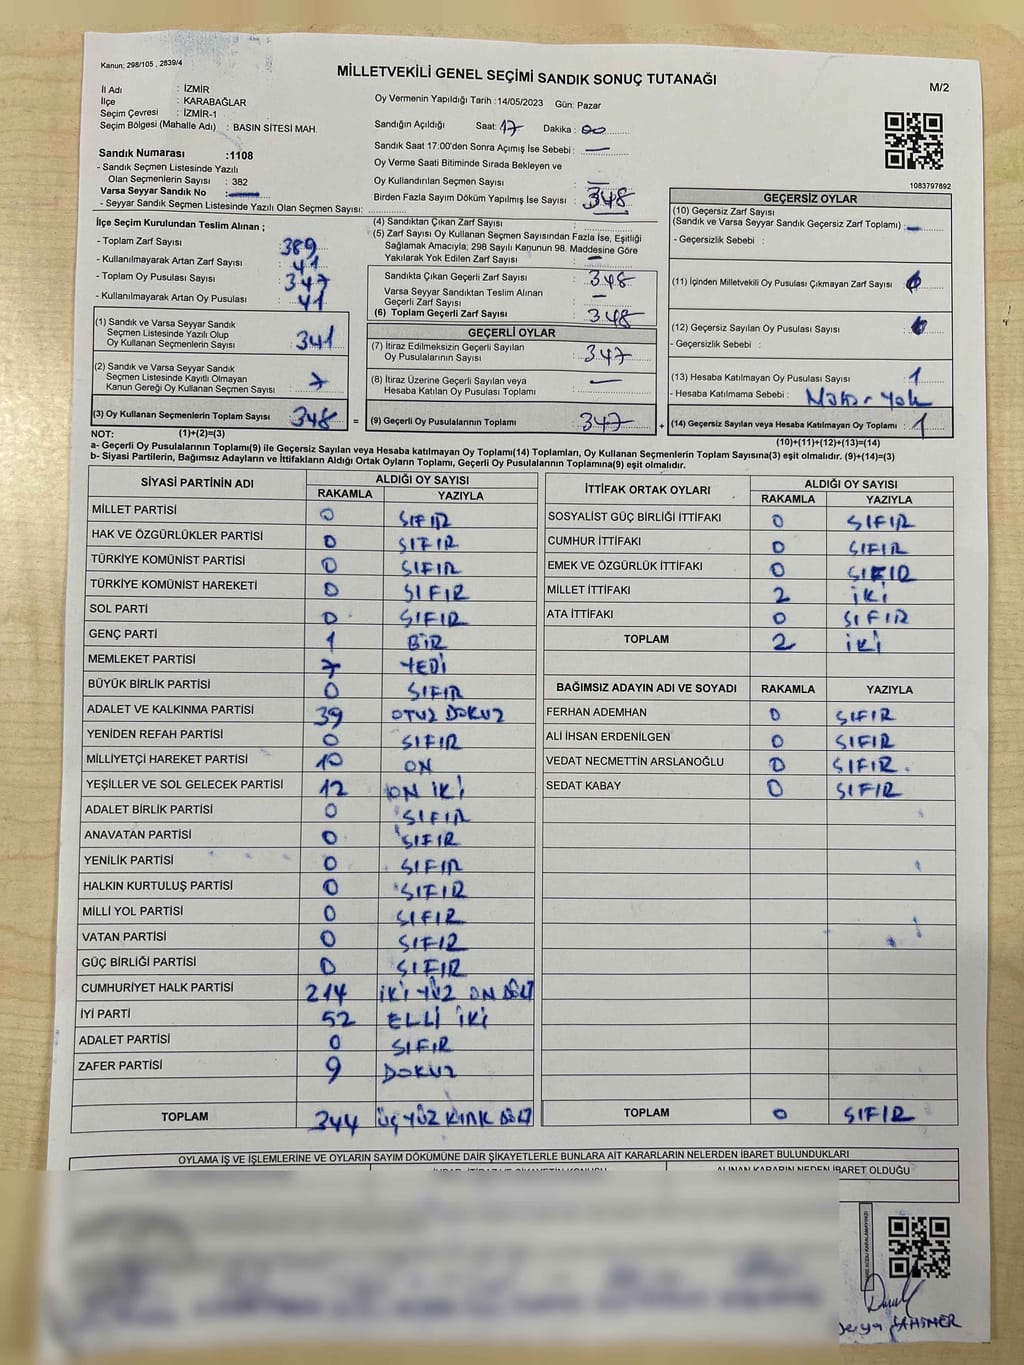 Kanun; 298/105 , 2839/4
MİLLETVEKİLİ GENEL SEÇİMİ SANDIK SONUÇ TUTANAĞI
M/2
İl Adı : İZMİR
İlçe : KARABAĞLAR
Seçim Çevresi : İZMİR-1
Seçim Bölgesi (Mahalle Adı) : BASIN SİTESİ MAH.
Oy Vermenin Yapıldığı Tarih :14/05/2023 Gün: Pazar
Sandığın Açıldığı Saat: 17 Dakika : 00
Sandık Saat 17:00'den Sonra Açımış İse Sebebi : —
Oy Verme Saati Bitiminde Sırada Bekleyen ve
Oy Kullandırılan Seçmen Sayısı : —
Birden Fazla Sayım Döküm Yapılmış İse Sayısı : 348
Sandık Numarası :1108
- Sandık Seçmen Listesinde Yazılı
Olan Seçmenlerin Sayısı : 382
Varsa Seyyar Sandık No :
- Seyyar Sandık Seçmen Listesinde Yazılı Olan Seçmen Sayısı:
1083797892
İlçe Seçim Kurulundan Teslim Alınan ;
- Toplam Zarf Sayısı : 389
- Kullanılmayarak Artan Zarf Sayısı : 41
- Toplam Oy Pusulası Sayısı : 347
- Kullanılmayarak Artan Oy Pusulası : 41
(1) Sandık ve Varsa Seyyar Sandık
Seçmen Listesinde Yazılı Olup
Oy Kullanan Seçmenlerin Sayısı : 341
(2) Sandık ve Varsa Seyyar Sandık
Seçmen Listesinde Kayıtlı Olmayan
Kanun Gereği Oy Kullanan Seçmen Sayısı : 7
(3) Oy Kullanan Seçmenlerin Toplam Sayısı : 348 =
(4) Sandıktan Çıkan Zarf Sayısı :
(5) Zarf Sayısı Oy Kullanan Seçmen Sayısından Fazla İse, Eşitliği
Sağlamak Amacıyla; 298 Sayılı Kanunun 98. Maddesine Göre
Yakılarak Yok Edilen Zarf Sayısı : —
Sandıkta Çıkan Geçerli Zarf Sayısı : 348
Varsa Seyyar Sandıktan Teslim Alınan
Geçerli Zarf Sayısı : —
(6) Toplam Geçerli Zarf Sayısı : 348
GEÇERLİ OYLAR
(7) İtiraz Edilmeksizin Geçerli Sayılan
Oy Pusulalarının Sayısı : 347
(8) İtiraz Üzerine Geçerli Sayılan veya
Hesaba Katılan Oy Pusulası Toplamı : —
(9) Geçerli Oy Pusulalarının Toplamı : 347 +
GEÇERSİZ OYLAR
(10) Geçersiz Zarf Sayısı
(Sandık ve Varsa Seyyar Sandık Geçersiz Zarf Toplamı) : —
- Geçersizlik Sebebi :
(11) İçinden Milletvekili Oy Pusulası Çıkmayan Zarf Sayısı :
(12) Geçersiz Sayılan Oy Pusulası Sayısı :
- Geçersizlik Sebebi :
(13) Hesaba Katılmayan Oy Pusulası Sayısı : 1
- Hesaba Katılmama Sebebi : Mühür yok
(14) Geçersiz Sayılan veya Hesaba Katılmayan Oy Toplamı : 1
NOT: (1)+(2)=(3)
(10)+(11)+(12)+(13)=(14)
a- Geçerli Oy Pusulalarının Toplamı(9) ile Geçersiz Sayılan veya Hesaba katılmayan Oy Toplamı(14) Toplamları, Oy Kullanan Seçmenlerin Toplam Sayısına(3) eşit olmalıdır. (9)+(14)=(3)
b- Siyasi Partilerin, Bağımsız Adayların ve İttifakların Aldığı Ortak Oyların Toplamı, Geçerli Oy Pusulalarının Toplamına(9) eşit olmalıdır.
SİYASİ PARTİNİN ADI ALDIĞI OY SAYISI
RAKAMLA YAZIYLA
MİLLET PARTİSİ 0 SIFIR
HAK VE ÖZGÜRLÜKLER PARTİSİ 0 SIFIR
TÜRKİYE KOMÜNİST PARTİSİ 0 SIFIR
TÜRKİYE KOMÜNİST HAREKETİ 0 SIFIR
SOL PARTİ 0 SIFIR
GENÇ PARTİ 1 BİR
MEMLEKET PARTİSİ 7 YEDİ
BÜYÜK BİRLİK PARTİSİ 0 SIFIR
ADALET VE KALKINMA PARTİSİ 39 OTUZ DOKUZ
YENİDEN REFAH PARTİSİ 0 SIFIR
MİLLİYETÇİ HAREKET PARTİSİ 10 ON
YEŞİLLER VE SOL GELECEK PARTİSİ 12 ON İKİ
ADALET BİRLİK PARTİSİ 0 SIFIR
ANAVATAN PARTİSİ 0 SIFIR
YENİLİK PARTİSİ 0 SIFIR
HALKIN KURTULUŞ PARTİSİ 0 SIFIR
MİLLİ YOL PARTİSİ 0 SIFIR
VATAN PARTİSİ 0 SIFIR
GÜÇ BİRLİĞİ PARTİSİ 0 SIFIR
CUMHURİYET HALK PARTİSİ 214 İKİ YÜZ ON DÖRT
İYİ PARTİ 52 ELLİ İKİ
ADALET PARTİSİ 0 SIFIR
ZAFER PARTİSİ 9 DOKUZ
TOPLAM 344 ÜÇ YÜZ KIRK DÖRT
İTTİFAK ORTAK OYLARI ALDIĞI OY SAYISI
RAKAMLA YAZIYLA
SOSYALİST GÜÇ BİRLİĞİ İTTİFAKI 0 SIFIR
CUMHUR İTTİFAKI 0 SIFIR
EMEK VE ÖZGÜRLÜK İTTİFAKI 0 SIFIR
MİLLET İTTİFAKI 2 İKİ
ATA İTTİFAKI 0 SIFIR
TOPLAM 2 İKİ
BAĞIMSIZ ADAYIN ADI VE SOYADI RAKAMLA YAZIYLA
FERHAN ADEMHAN 0 SIFIR
ALİ İHSAN ERDENİLGEN 0 SIFIR
VEDAT NECMETTİN ARSLANOĞLU 0 SIFIR.
SEDAT KABAY 0 SIFIR
TOPLAM 0 SIFIR
OYLAMA İŞ VE İŞLEMLERİNE VE OYLARIN SAYIM DÖKÜMÜNE DAİR ŞİKAYETLERLE BUNLARA AİT KARARLARIN NELERDEN İBARET BULUNDUKLARI
İHBAR, İTİRAZ VE ŞİKAYETİN KONUSU ALINAN KARARIN NEDEN İBARET OLDUĞU